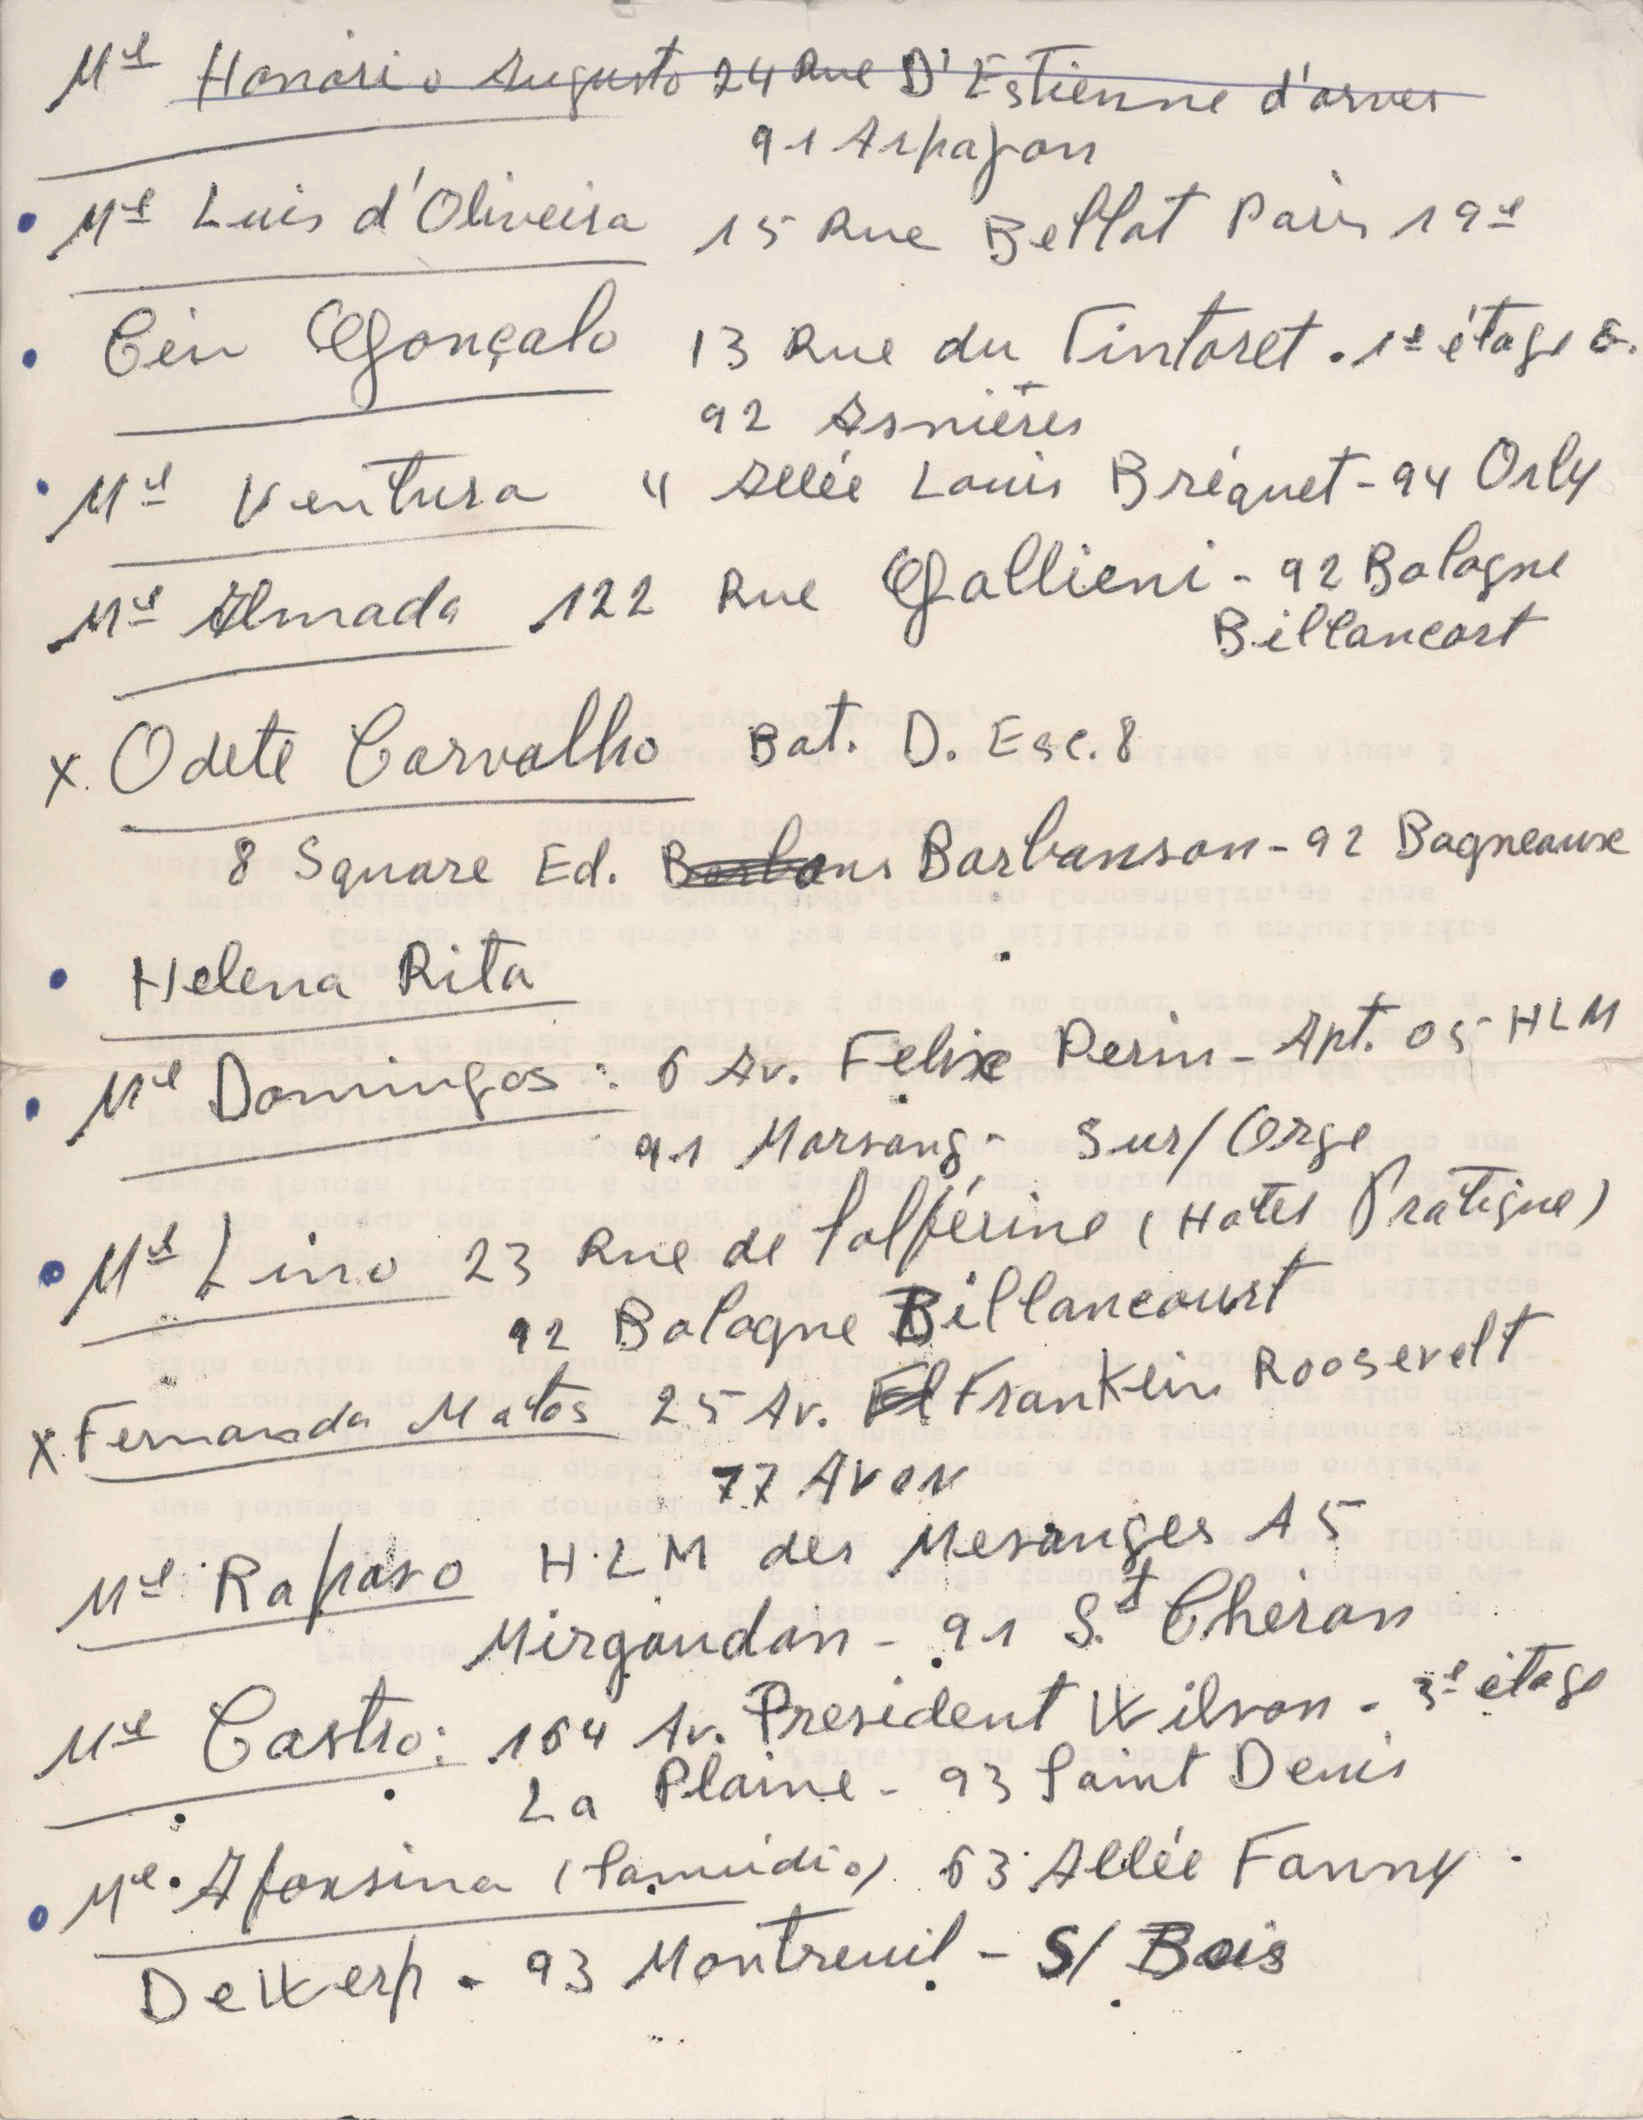 Mel Honório Augusto 24 Rue D'Estienne d'orves
91 Arpajon
Mel Luis d'Oliveira 15 Rue Bellot Paris 19e
Gonçalo 13 Rue du Tintoret . 1e étage
92 Asnières
Mel Ventura 4 Allée Louis Bréquet - 94 Orly
Mel Almada 122 Rue Gallieni - 92 Bologne
Billancort
x. Odete Carvalho Bat. D. Esc. 8
8 Square Ed. Barbanson - 92 Bagneaux
Helena Rita
Mel Domingos : 6 Av. Felix Perin - Apt. 05 - HLM
91 Morsang - Sur/Orge
Mel Lino 23 Rue de Solférino (Hotel Pratique)
92 Bologne Billancourt
x. Fernanda Matos 25 Av. Franklin Roosevelt
77 Avon
Mel Raposo H.L.M des Mesanges A5
Mirgaudon - 91 St. Cheron
Mel Castro : 164 Av. President Wilson - 3e étage
La Plaine - 93 Saint Denis
Mel. Afonsina 63 Allée Fanny
Dewerp - 93 Montreuil - S/ Bois